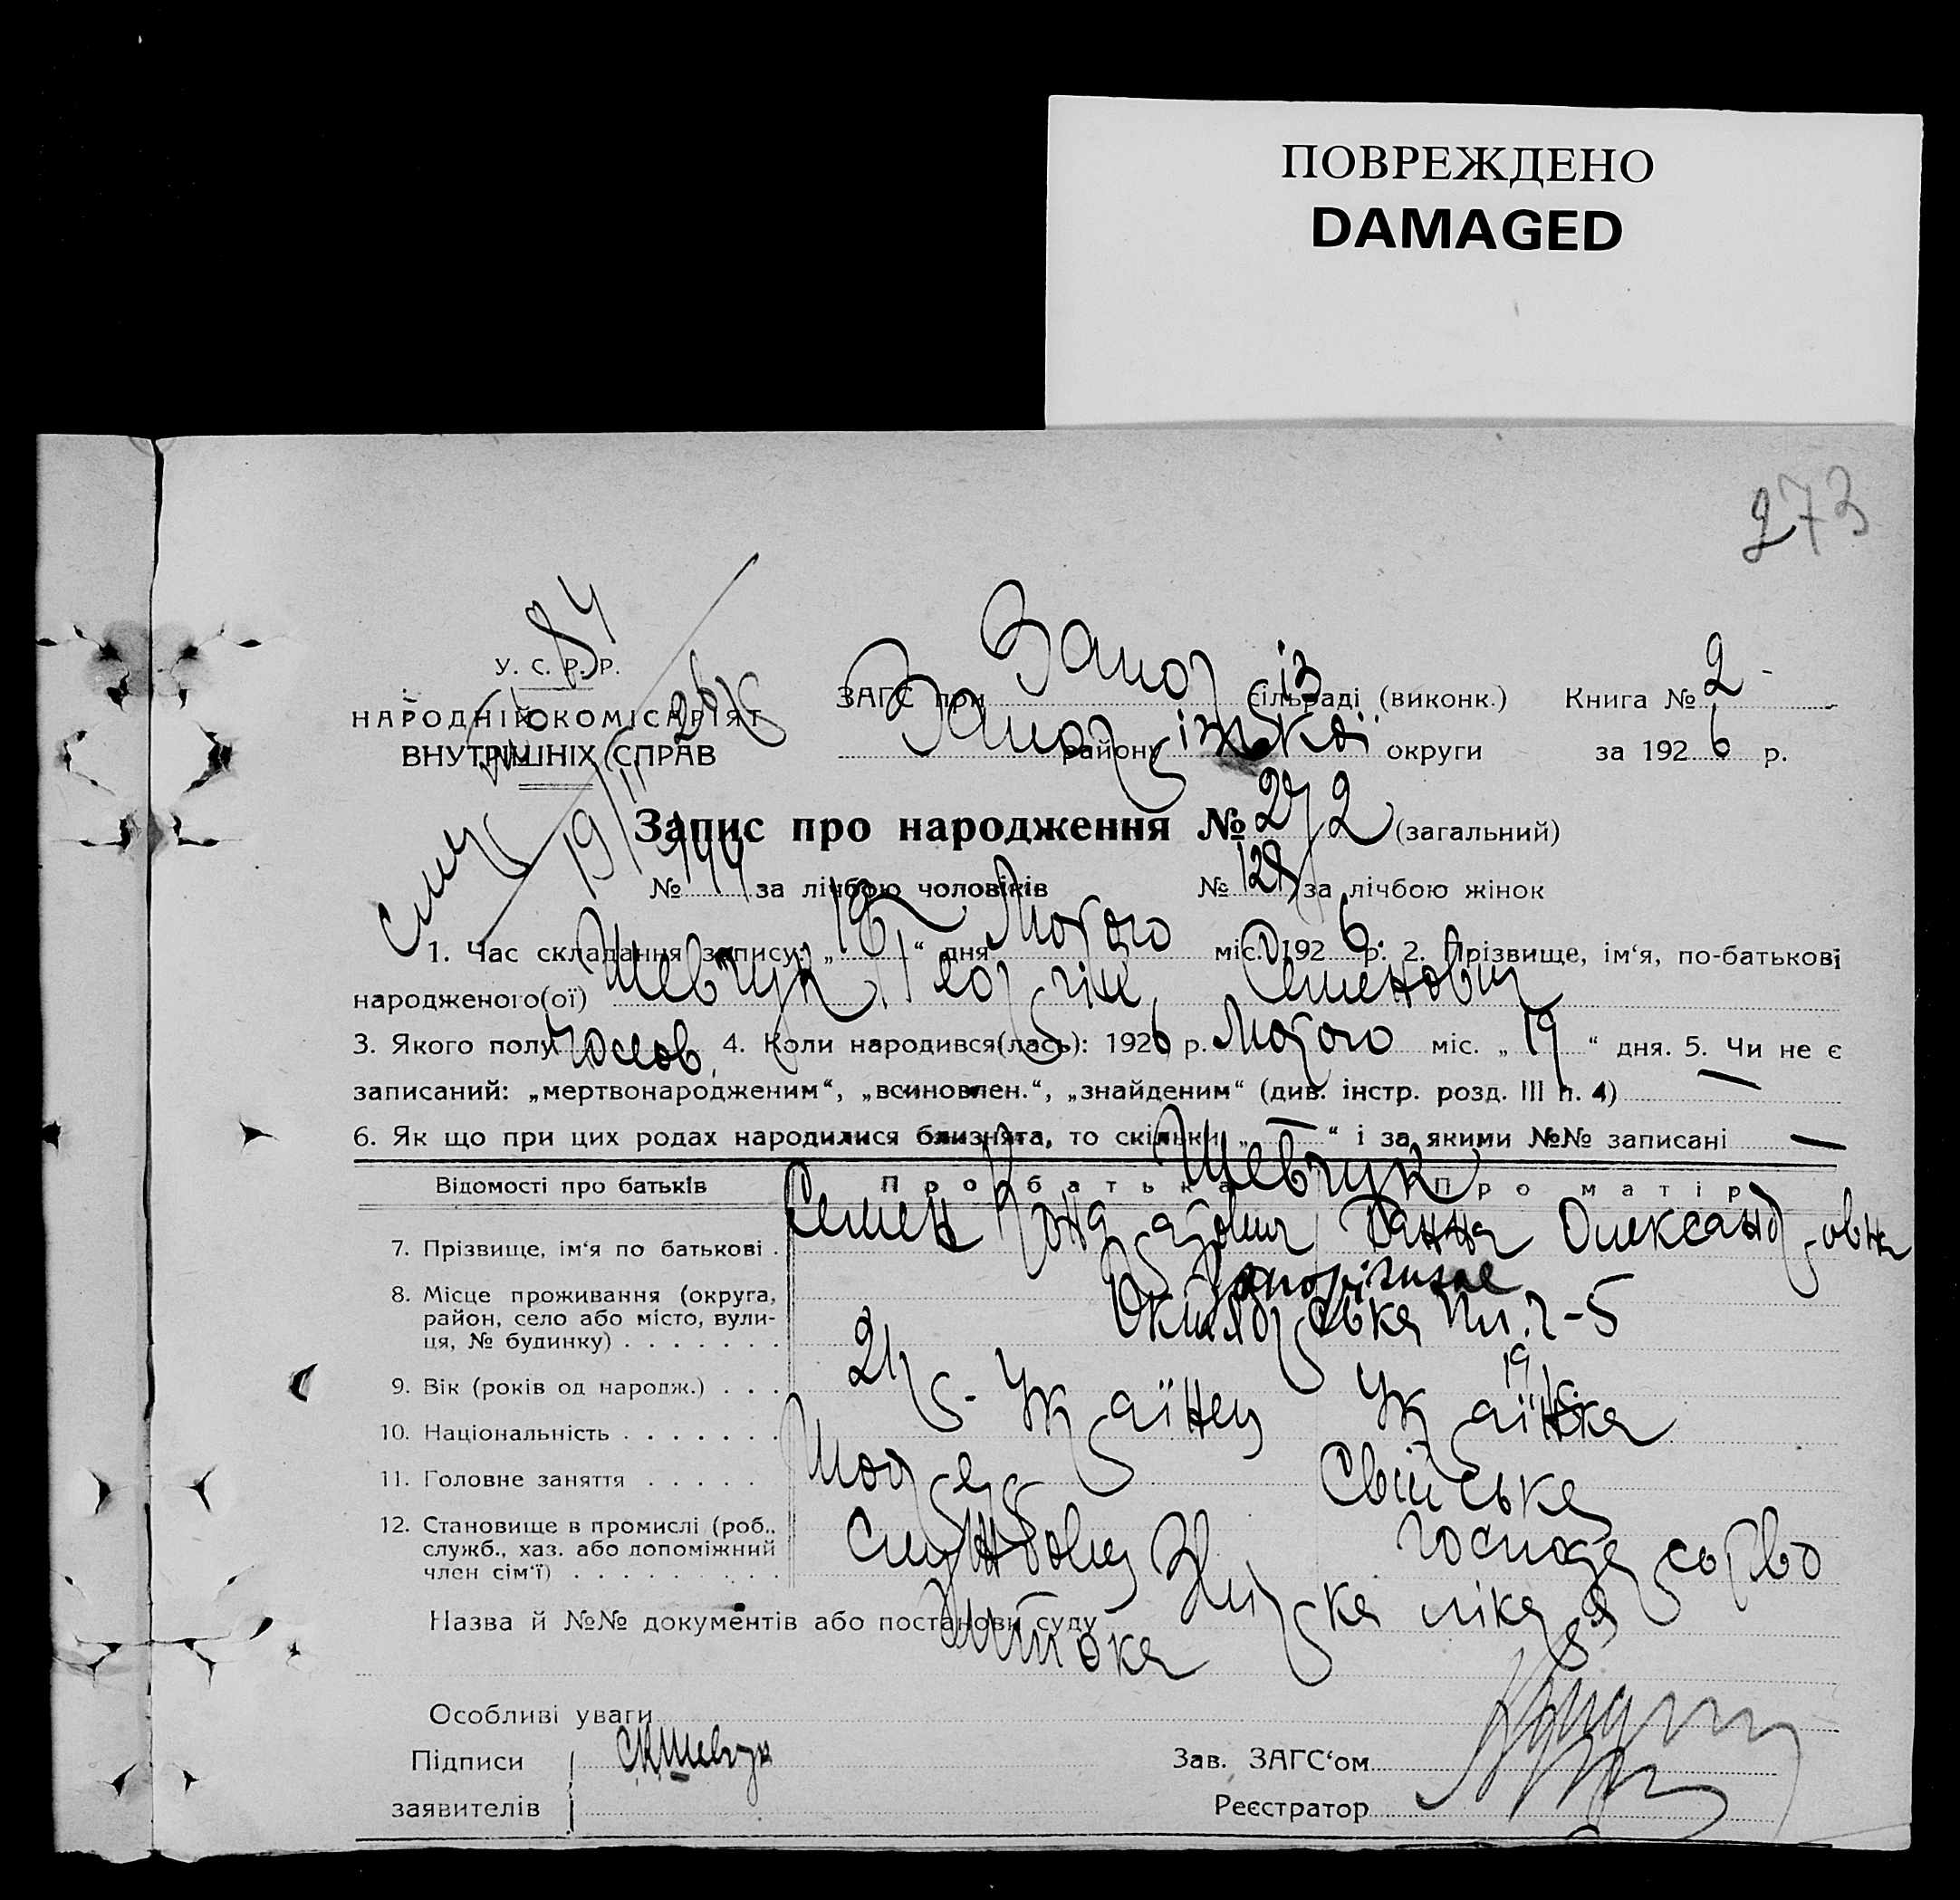 ПОВРЕЖДЕНО
DAMAGED
273
84
У. С. Р. Р.
НАРОДНІЙ КОМІСАРІЯТ
ВНУТРІШНІХ СПРАВ
ЗАГС при Запоріз сільраді (виконк.) Книга № 2 -
району Запоріжської округи за 1926 р.
Запис про народження № 272 (загальний)
№ 144 за лічбою чоловіків № 128 за лічбою жінок
1. Час складання запису: „ “ дня Лютого міс. 1926 р. 2. Прізвище, ім‘я, по-батькові
народженого(ої) Шевчук Георгій Семенович
3. Якого полу Чолов. 4. Коли народився(лась): 1926 р. Лютого міс. „ 19 “ дня. 5. Чи не є
записаний: „мертвонародженим“, „всиновлен.“, „знайденим“ (див. інстр. розд. III п. 4) —
6. Як що при цих родах народилися близнята, то скільки „ — “ і за якими №№ записані —
Відомості про батьків Про батька Про матір
Шевчук
7. Прізвище, ім‘я по батькові . Семен Кондратович Ганна Олександровна
8. Місце проживання (округа, район, село або місто, вулиця, № будинку) . . . . . . . Запоріжжя
Октябрська пл. 2-5
9. Вік (років од народж.) . . . 21 р. 19 р.
10. Національність . . . . . . . Українец Українка
11. Головне заняття . . . . . Свійське
12. Становище в промислі (роб., служб., хаз. або допоміжний член сім‘ї) . . . . . . . . . Службовец господарство
Назва й №№ документів або постанови суду лікаря
Особливі уваги
Підписи СКШевчук Зав. ЗАГС‘ом
заявителів Реєстратор